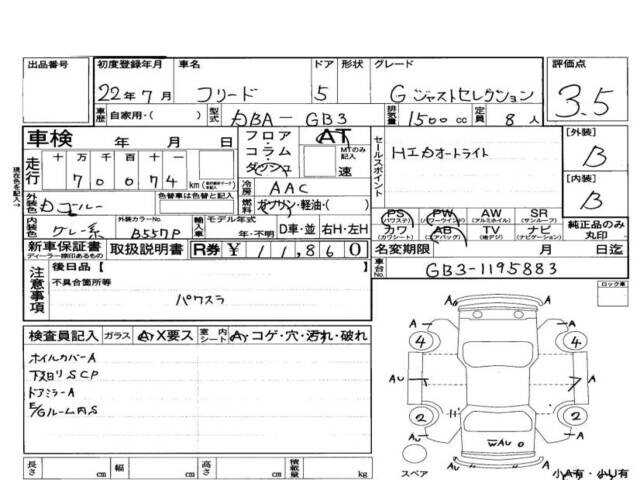 出品番号 初度登録年月 車名 ドア 形状 グレード 評価点
22年7月 フリード 5 Gジャストセレクション 3.5
車歴 自家用・( ) 型式 DBA-GB3 排気量 1500cc 定員 8人
車検 年 月 日 フロア・コラム・ダッシュ AT MTのみ記入 速
[外装] B
セールスポイント HIDオートライト
走行 十万千百十 70074 km
現在色を記入→
冷房 AAC
[内装] B
外装色 色替車は色替と記入 燃料 ガソリン・軽油・( )
PS (パワステ) PW (パワーウインド) AW (アルミホイル) SR (サンルーフ)
カワ (カワシート) AB (エアバッグ) TV (地デジ) ナビ (ナビゲーション) 純正品のみ丸印
内装色 グレー系 外装カラーNo. B557P 輸入車 モデル年式 年・不明 D車・並 右H・左H
新車保証書 ディーラー捺印あるもの 取扱説明書 R券 ¥ 11,860
名変期限 月 日迄
車台No. GB3-1195883
注意事項 後日品[ ]
不具合箇所等
パワスラ
ロック車
検査員記入 ガラス A X要ス 室内シート A コゲ・穴・汚れ・破れ
ホイルカバーA
下廻りSCP
ドアミラーA
E/Gルーム内S
A A
4 4
A A
AU A
2 2
A A
WAU
長さ cm 幅 cm 高さ cm 積載量 kg
スペア 小A有・小U有